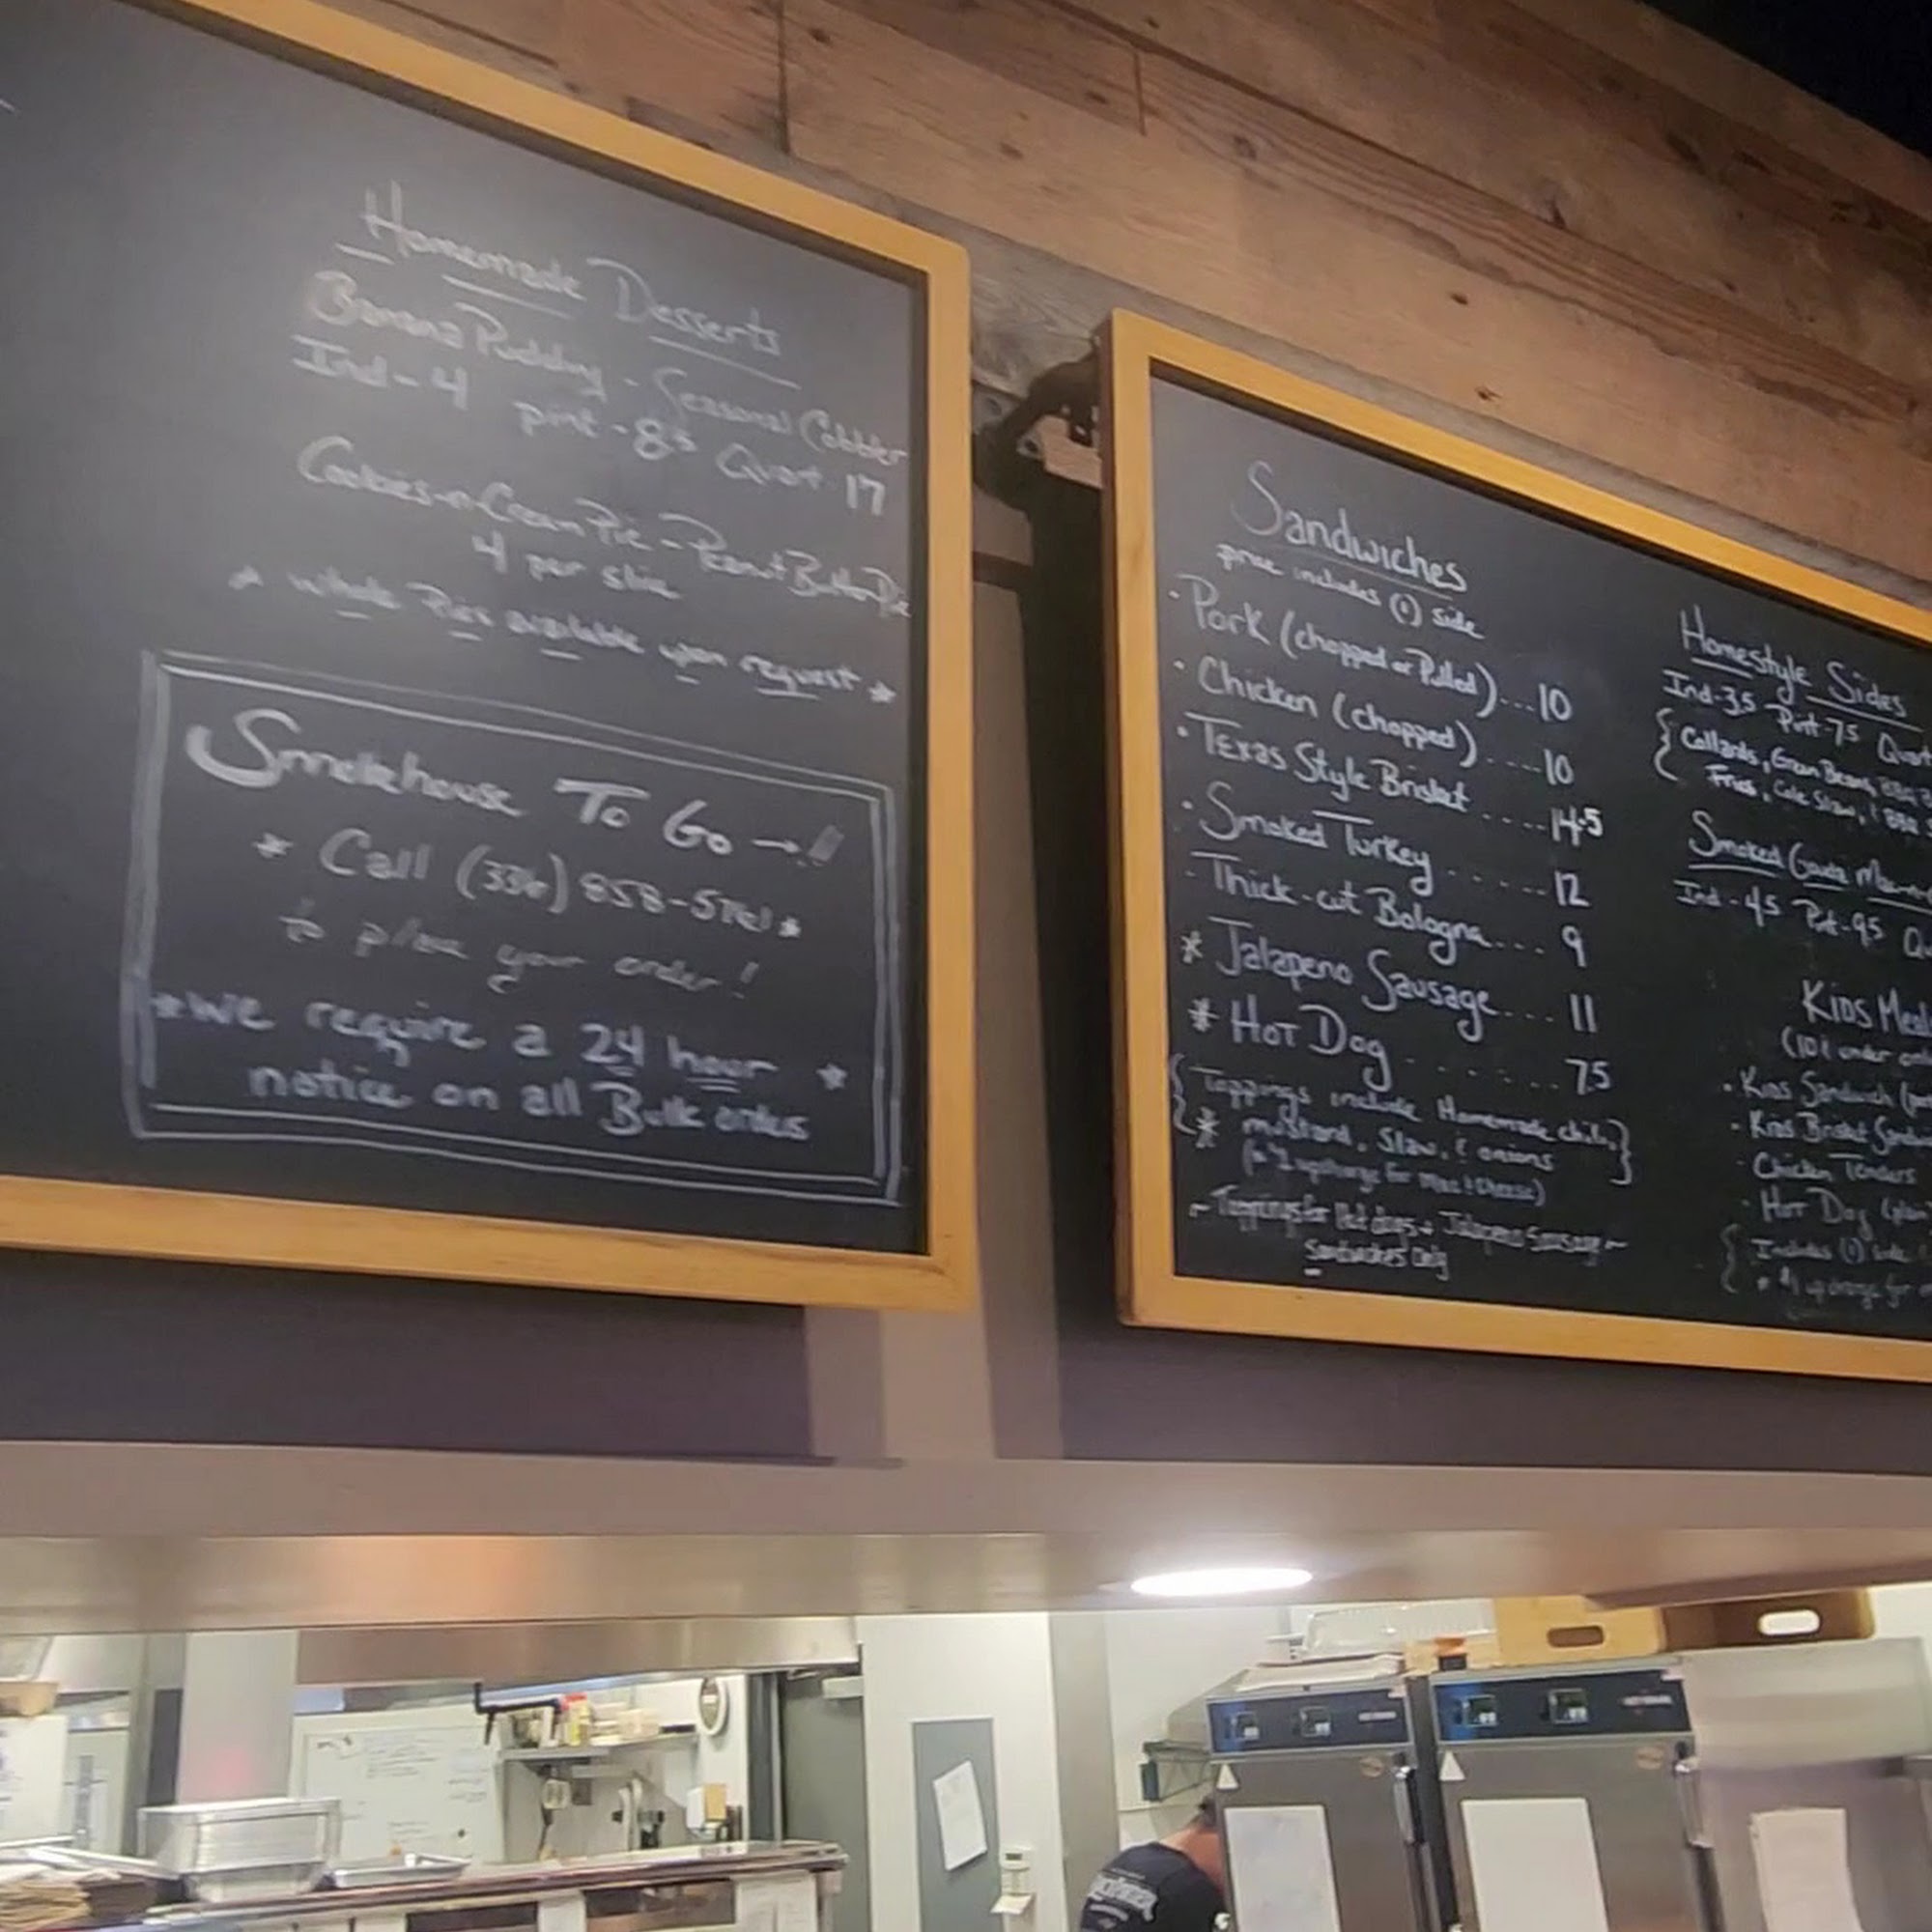 Homemade Desserts
Banana Pudding - Seasonal Cobbler
Ind - 4 pint - 85 Quart 17
Cookies-n-Cream Pie - Peanut Butter Pie
4 per slice
* whole Pies available upon request *
Smokehouse To Go →!!
* Call (336) 858-
to place your order!
* we require a 24 hour *
notice on all Bulk orders
Sandwiches
price includes (1) side
• Pork (chopped or Pulled)...10
• Chicken (chopped)....10
• Texas Style Brisket ....14.5
• Smoked Turkey ......12
- Thick-cut Bologna... 9
* Jalapeno Sausage... 11
* Hot Dog ....... 75
{ Toppings include Homemade chili, }
* mustard, Slaw, & onions
upcharge for Mac & Cheese)
~ Toppings for Hot dogs & Jalapeno Sausage ~
Sandwiches Only
Homestyle Sides
Ind - 35 Pint - 75 Quart
{ Collards, Green Beans, BBQ
Fries, Cole Slaw, & BBQ
Smoked Gouda Mac-n-
Ind - 45 Pint - 95 Qu
Kids Meal
(10 & under onl
• Kids Sandwich (po
- Kids Brisket Sandw
- Chicken Tenders
• Hot Dog (plain
{ Includes (1) side
* $1 upcharge for